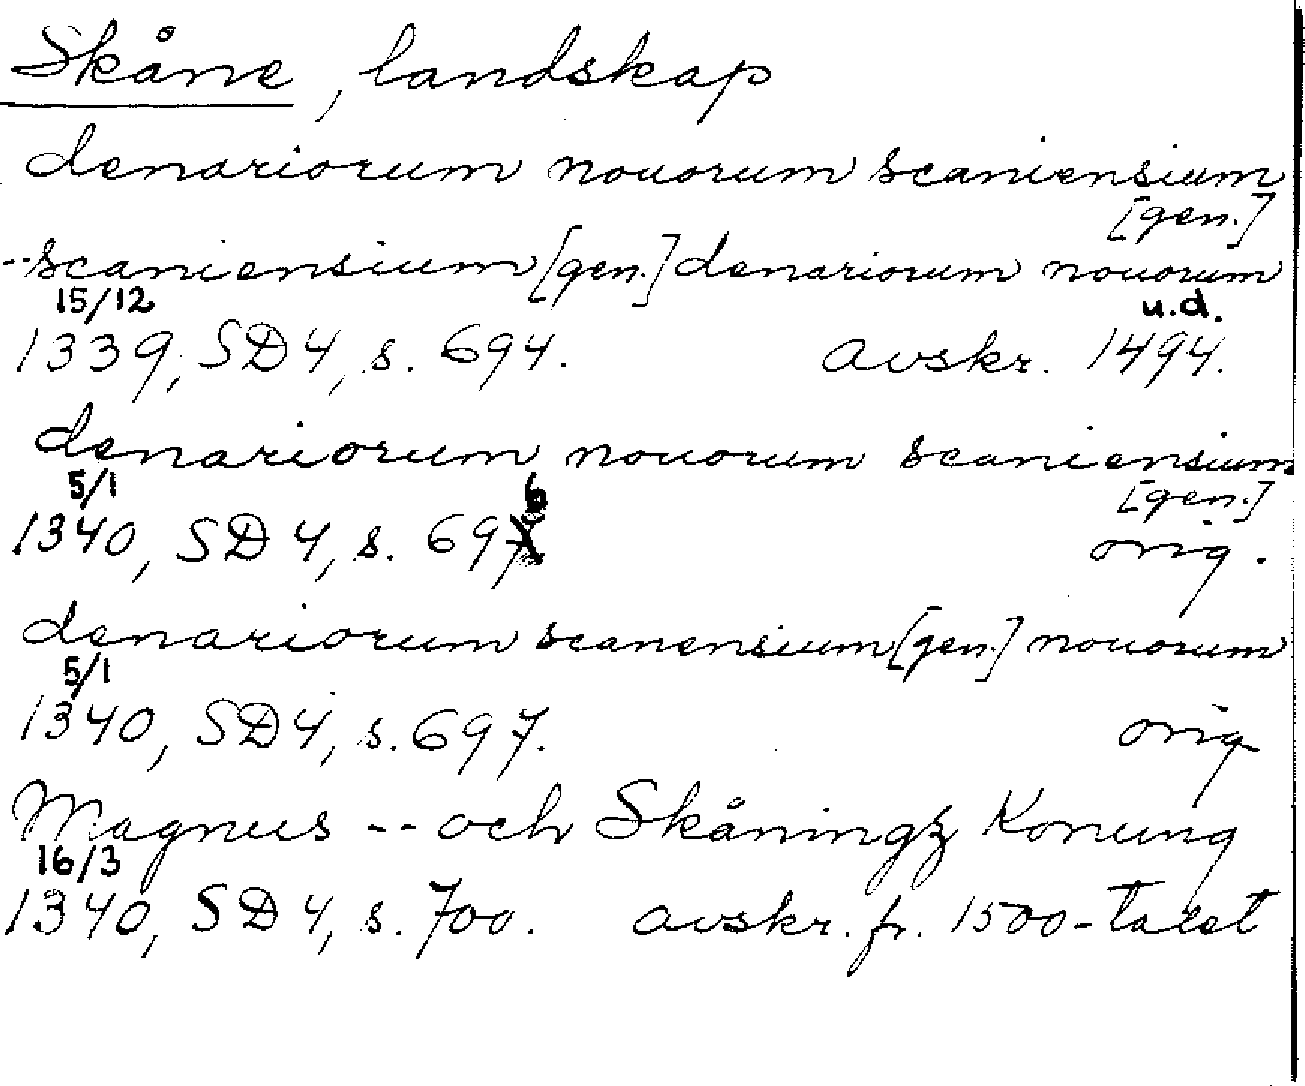 Skåne, landskap
denariorum nouorum scaniensium
[gen.]
--scaniensium [gen.] denariorum nouorum
15/12 u.d.
1339, SD 4, s. 694. avskr. 1494.
denariorum nouorum scaniensium
5/1 6 [gen.]
1340, SD 4, s. 697 orig.
denariorum scanensium [gen.] nouorum
5/1
1340, SD 4, s. 697. orig
Magnus -- och Skåningz Konung
16/3
1340, SD 4, s. 700. avskr. fr. 1500-talet